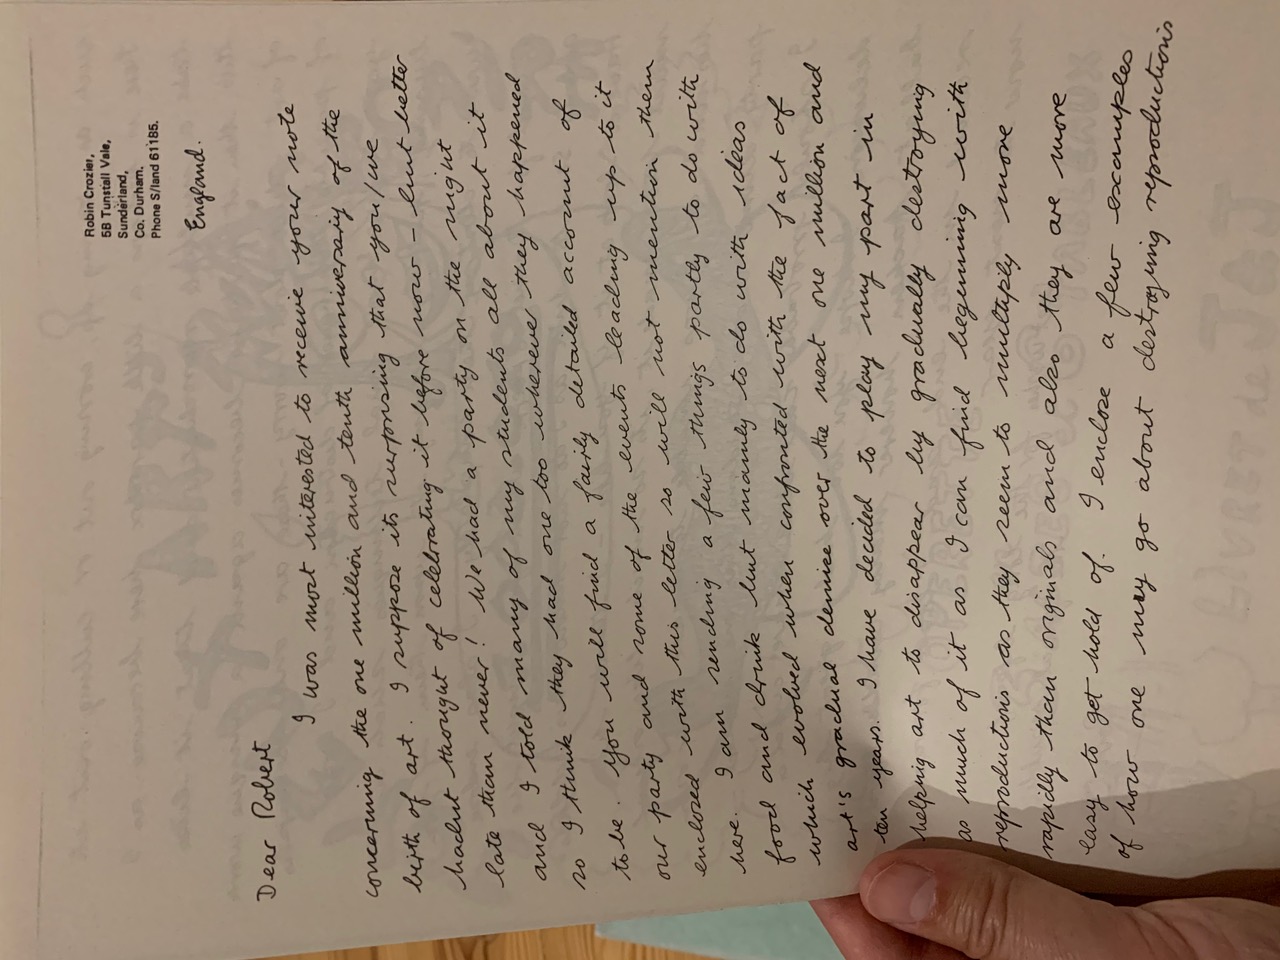 Robin Crozier,
5B Tunstall Vale,
Sunderland,
Co. Durham.
Phone S/land 61185.
England.
Dear Robert
I was most interested to receive your note
concerning the one million and tenth anniversary of the
birth of art. I suppose its surprising that you/we
hadnt thought of celebrating it before now - but better
late than never! We had a party on the night
and I told many of my students all about it
so I think they had one too wherever they happened
to be. You will find a fairly detailed account of
our party and some of the events leading up to it
enclosed with this letter so will not mention them
here. I am sending a few things partly to do with
food and drink but mainly to do with ideas
which evolved when confronted with the fact of
art's gradual demise over the next one million and
ten years. I have decided to play my part in
helping art to disappear by gradually destroying
as much of it as I can find beginning with
reproductions as they seem to multiply more
rapidly than originals and also they are more
easy to get hold of. I enclose a few examples
of how one may go about destroying reproductions